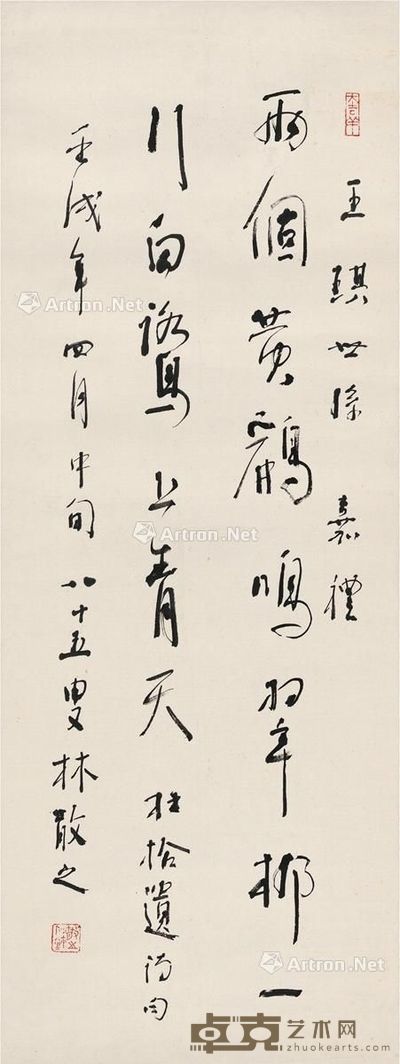 王琪世隊嘉禮
兩個黃鸝鳴翠柳一
行白鷺上青天杜拾遺詩句
壬戌年四月中旬八十五叟林散之
Artron.Net
Artron.Net
Artron.Net
Artron.Net
卓克艺术网
zhuokearts.com